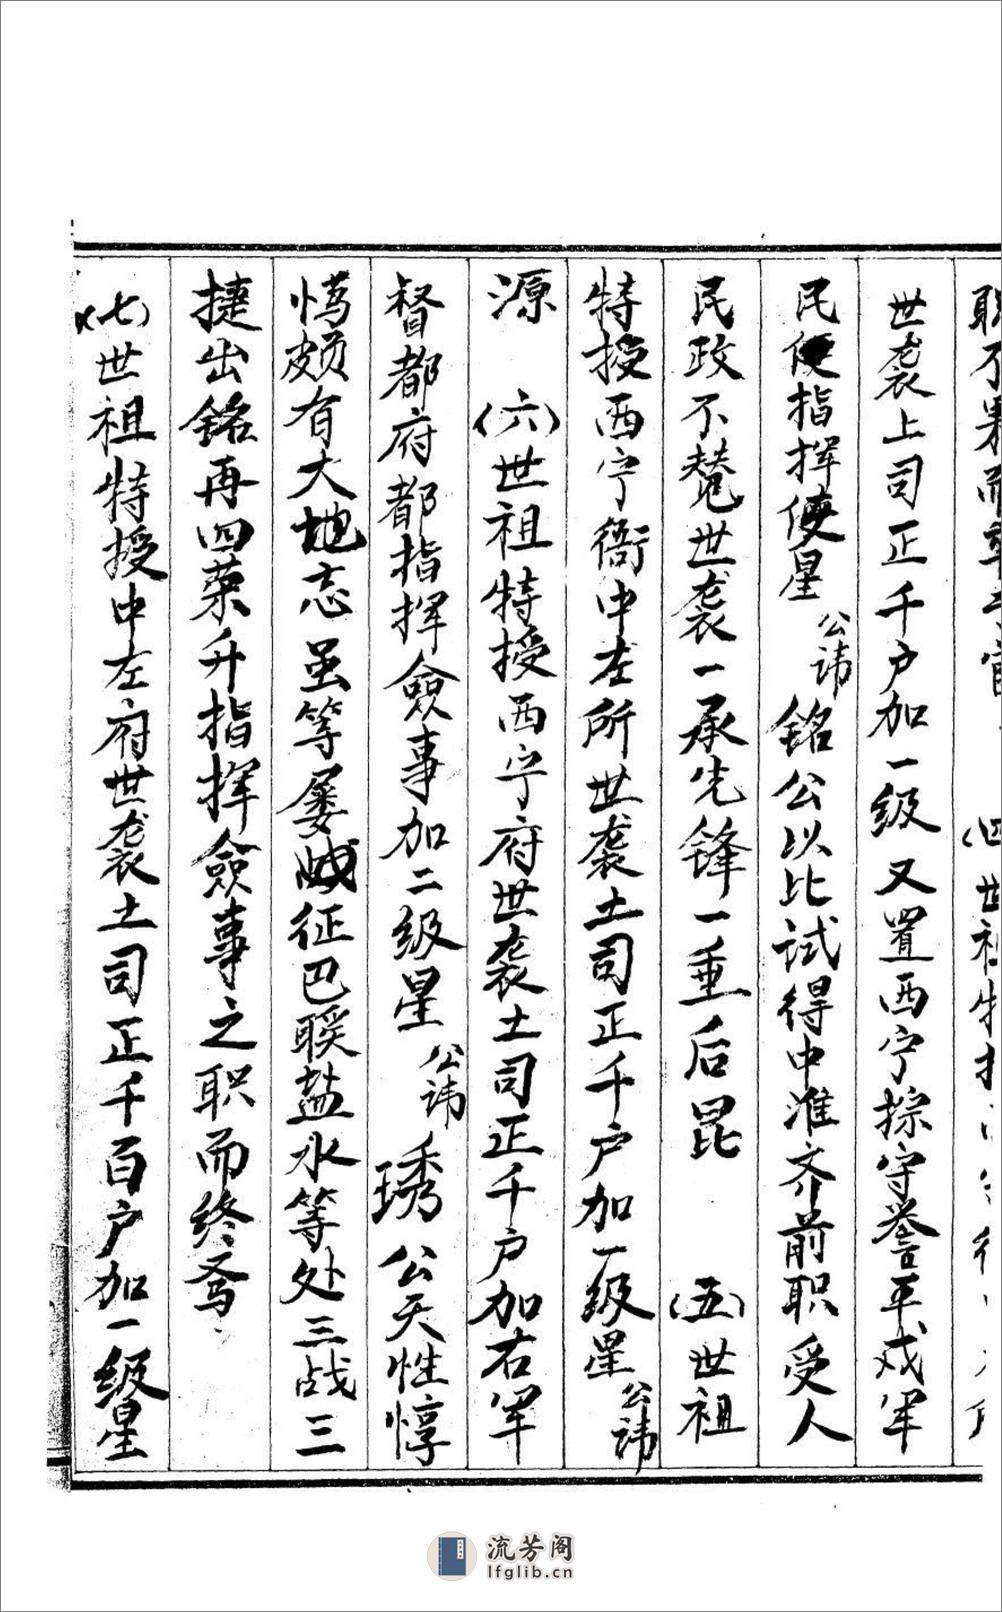 世袭上司正千户加一级又置西宁探守誉平戎军
民使指挥使星公讳铭公以比试得中准齐前职受人
民政不赞世袭一承先锋一垂后昆 (五)世祖
特授西宁衛中左所世袭土司正千户加一级星公讳
源 (六)世祖特授西宁府世袭土司正千户加右军
督都府都指挥佥事加二级星公讳琇公天性惇
有大地志虽等屡征巴暖盐水等处三战三
捷出铭再四荣升指挥佥事之职而终焉
(七)世祖特授中左府世袭土司正千百户加一级星
流芳阁
lfglib.cn